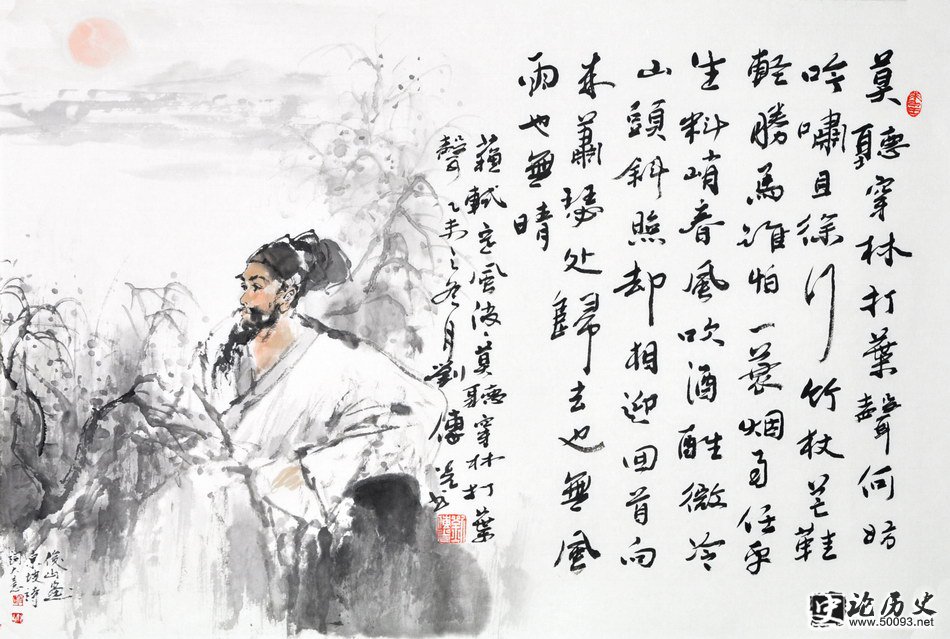 莫聽穿林打葉聲何妨
吟嘯且徐行竹杖芒鞋
輕勝馬誰怕一蓑烟雨任平
生料峭春風吹酒醒微冷
山頭斜照却相迎回首向
来蕭瑟处歸去也無風
雨也無晴
蘇軾定風波、莫聽穿林打葉
聲乙未之冬月劉傳
俊山画
東坡詩
论历史
www.50093.net